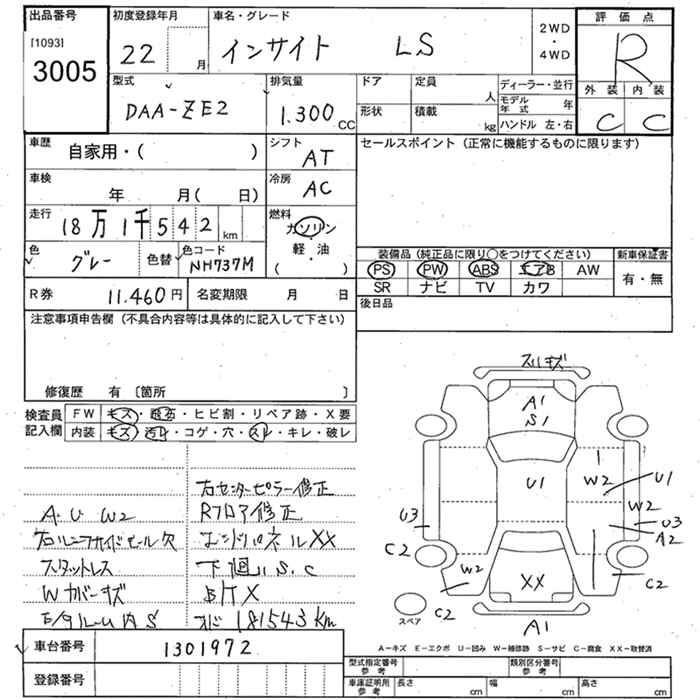 出品番号 初度登録年月 車名・グレード 2WD・4WD 評価点
[1093] 3005 22 月 インサイト LS R
外装 内装
C C
型式 排気量 ドア 定員 人 ディーラー・並行
DAA-ZE2 1.300 CC 形状 積載 kg モデル年式 年
ハンドル 左・右
車歴 自家用・( ) シフト AT セールスポイント (正常に機能するものに限ります)
車検 年 月( 日) 冷房 AC
走行 18万1千542 km 燃料 ガソリン・軽油・( )
色 グレー 色替 色コード NH737M
装備品 (純正品に限り○をつけてください) 新車保証書
PS PW ABS エアB AW 有・無
SR ナビ TV カワ
R券 11.460円 名変期限 月 日 後日品
注意事項申告欄 (不具合内容等は具体的に記入して下さい)
修復歴 有 〔箇所 〕
検査員記入欄 FW キズ・飛石・ヒビ割・リペア跡・X要
内装 キズ・汚れ・コゲ・穴・スレ・キレ・破レ
右センターピラー修正
A.U W2 Rフロア修正
エンドパネルXX
スタットレス 下廻りS.C
Wカバーキズ
181543km
スリキズ
A1
S1
U1
W2
U1
W2
U3
U3
A2
C2
W2
XX
C2
C2
A1
スペア
A-キズ E-エクボ U-凹み W-補修跡 S-サビ C-腐食 XX-取替済
車台番号 1301972
登録番号
型式指定番号 参考 類別区分番号 参考
車庫証明用 参考 長さ cm 幅 cm 高さ cm